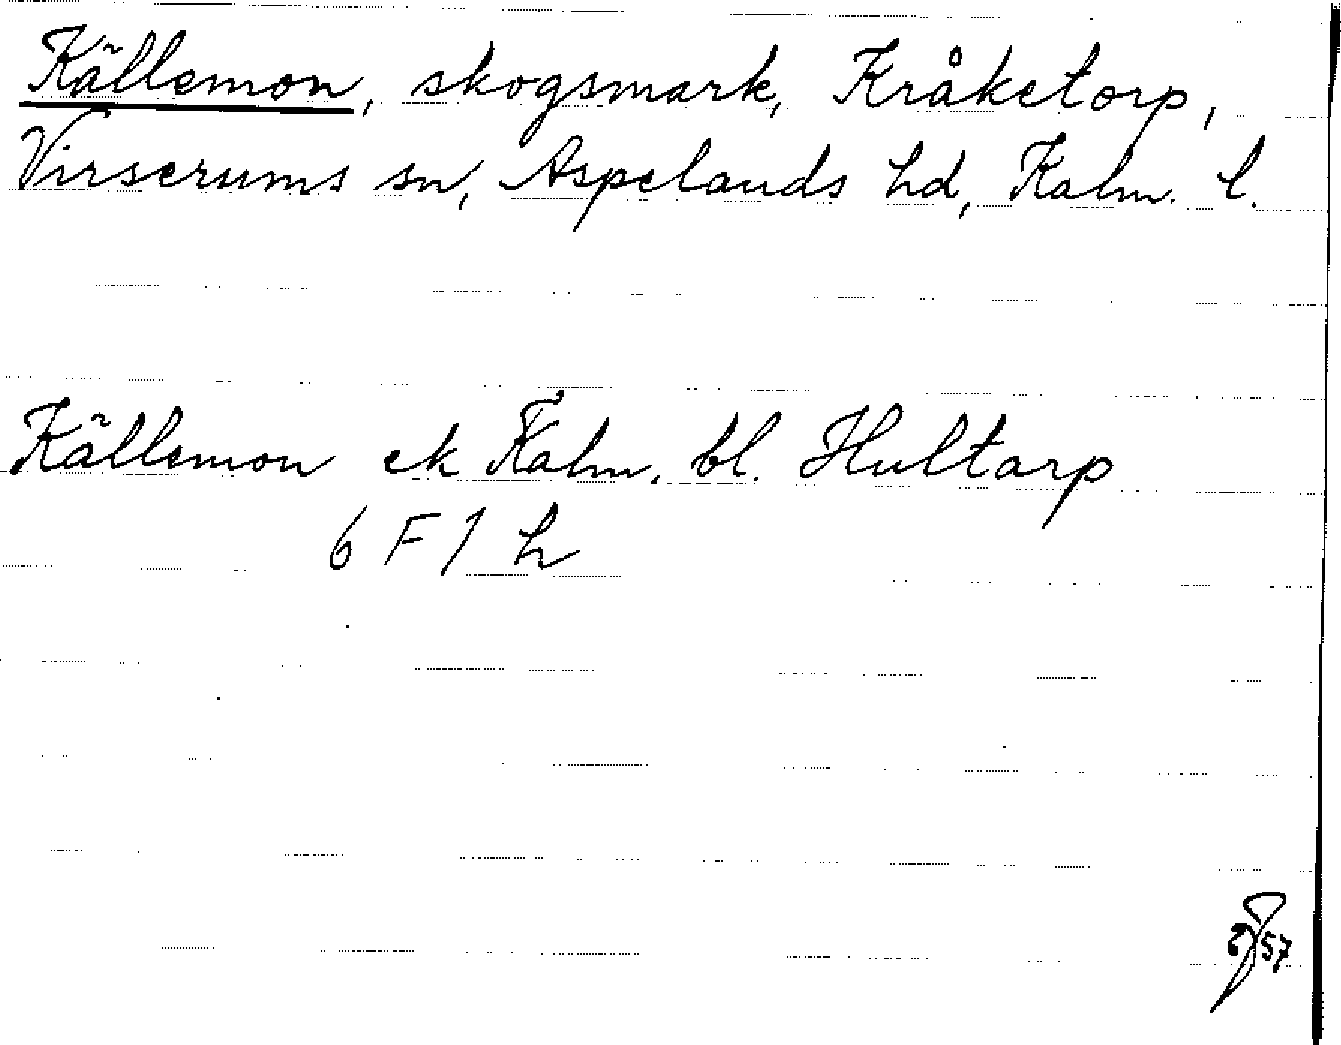 Källemon, skogsmark, Kråketorp,
Virserums sn, Aspelands hd, Kalm. l.
Källemon ek Kalm. bl. Hultarp
6 F 1 h
57